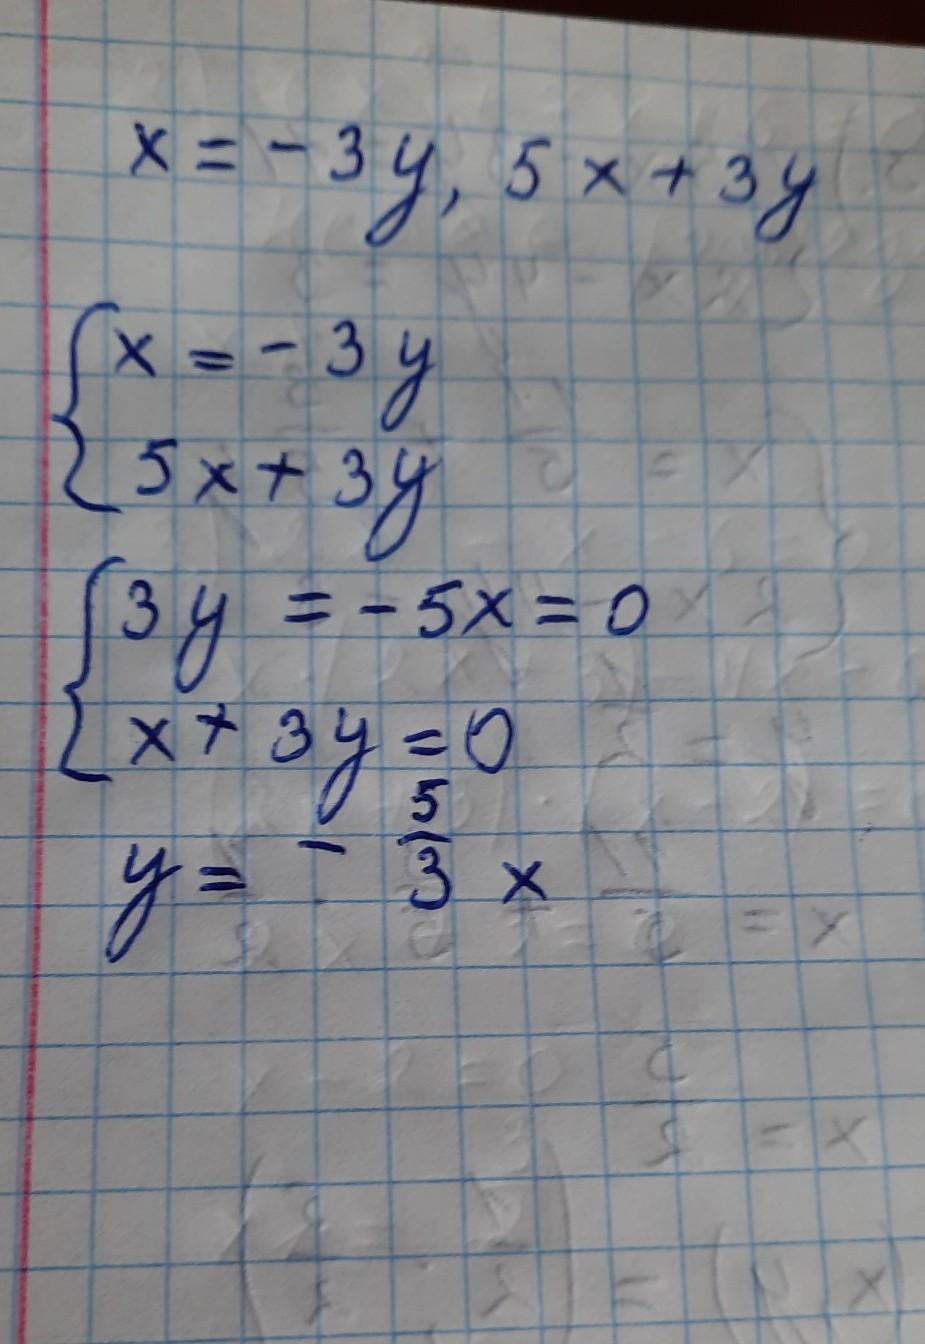 x = - 3y, 5x + 3y
x = - 3y
5x + 3y
3y = - 5x = 0
x + 3y = 0
y = - 5/3 x